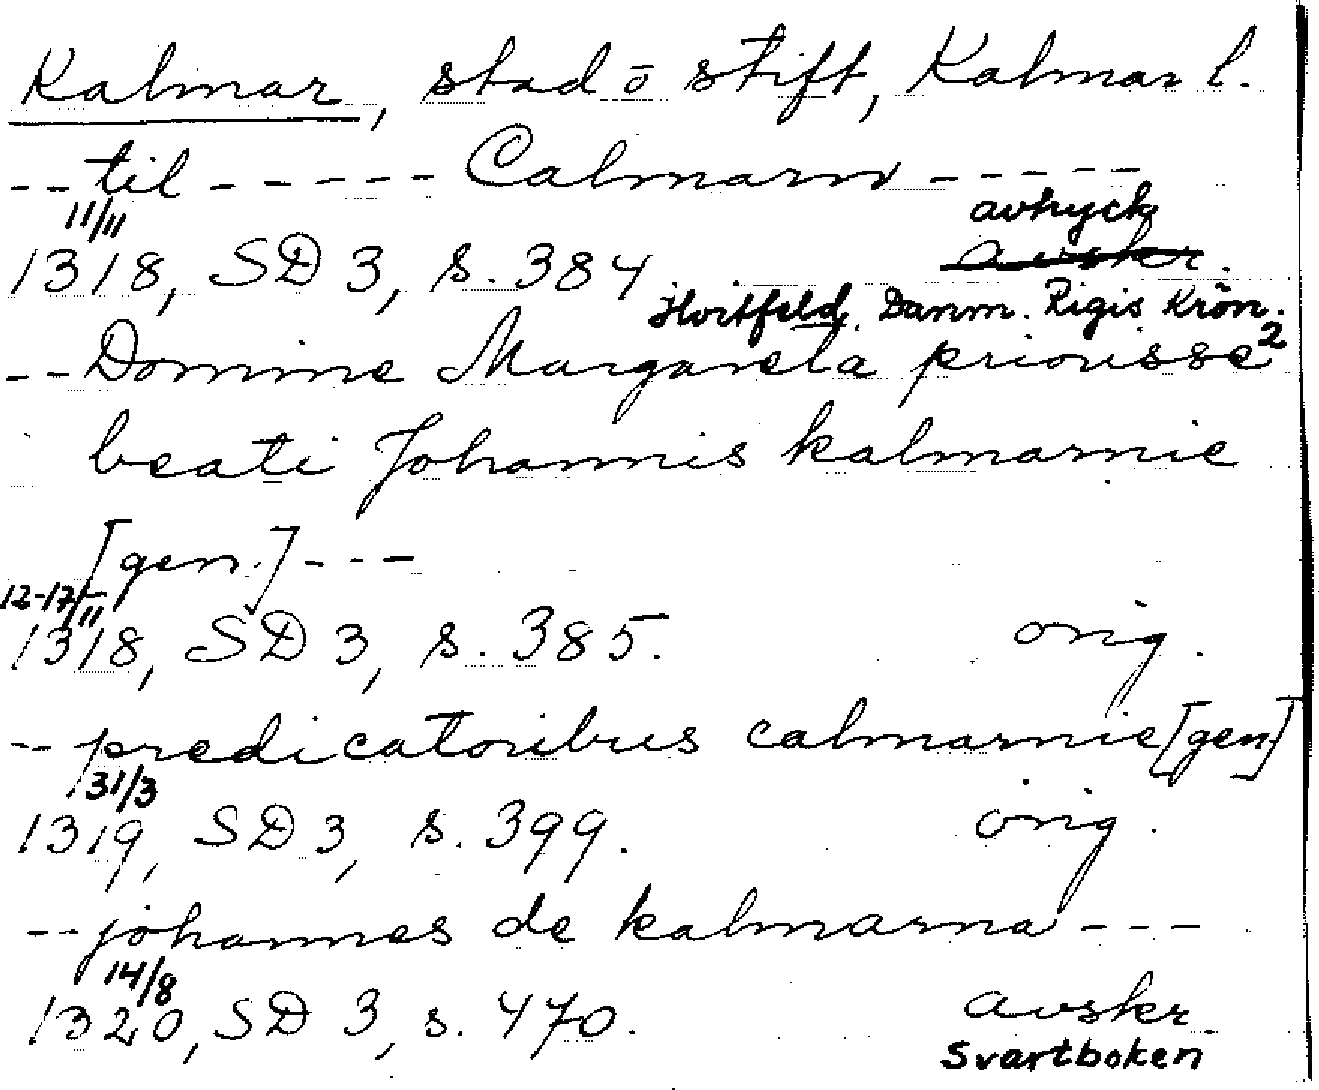 Kalmar, stad o stift, Kalmar l.
-- til ----- Calmarn -----
11/11 avtryck
1318, SD 3, s. 384 avskr.
Hvitfeld, Danm. Rigis Krön. 2
-- Domine Margareta priorisse
beati Johannis kalmarnie
[gen.] ---
12-17/11
1318, SD 3, s. 385. orig.
-- predicatoribus calmarnie [gen]
31/3
1319, SD 3, s. 399. orig.
-- johannes de kalmarna ---
14/8
1320, SD 3, s. 470. avskr.
Svartboken